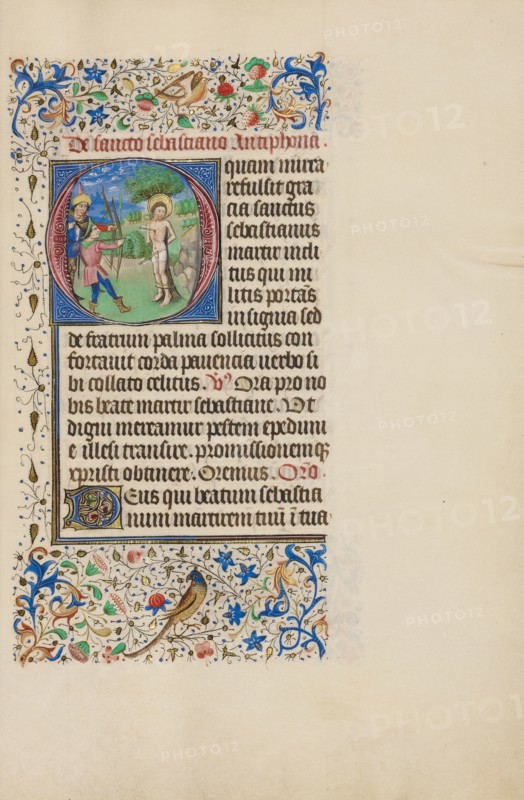 De sancto sebastiano Antiphona.
O quam mira
refulsit gra
cia sanctus
sebastianus
martir incli
tus qui mi
litis portās
insignia sed
de fratrum palma sollicitus con
fortauit corda pauencia uerbo si
bi collato celitus. V⁹ Ora pro no
bis beate martir sebastiane. Vt
digni mereamur pestem epedimi
e illesi transire. promissionem q̄
xpristi obtinere. Oremus. Oro.
Deus qui beatum sebastia
num martirem tuū ī tua
PHOTO12
PHOTO12
PHOTO12
PHOTO12
PHOTO12
PHOTO12
PHOTO12
PHOTO12
PHOTO12
PHOTO12